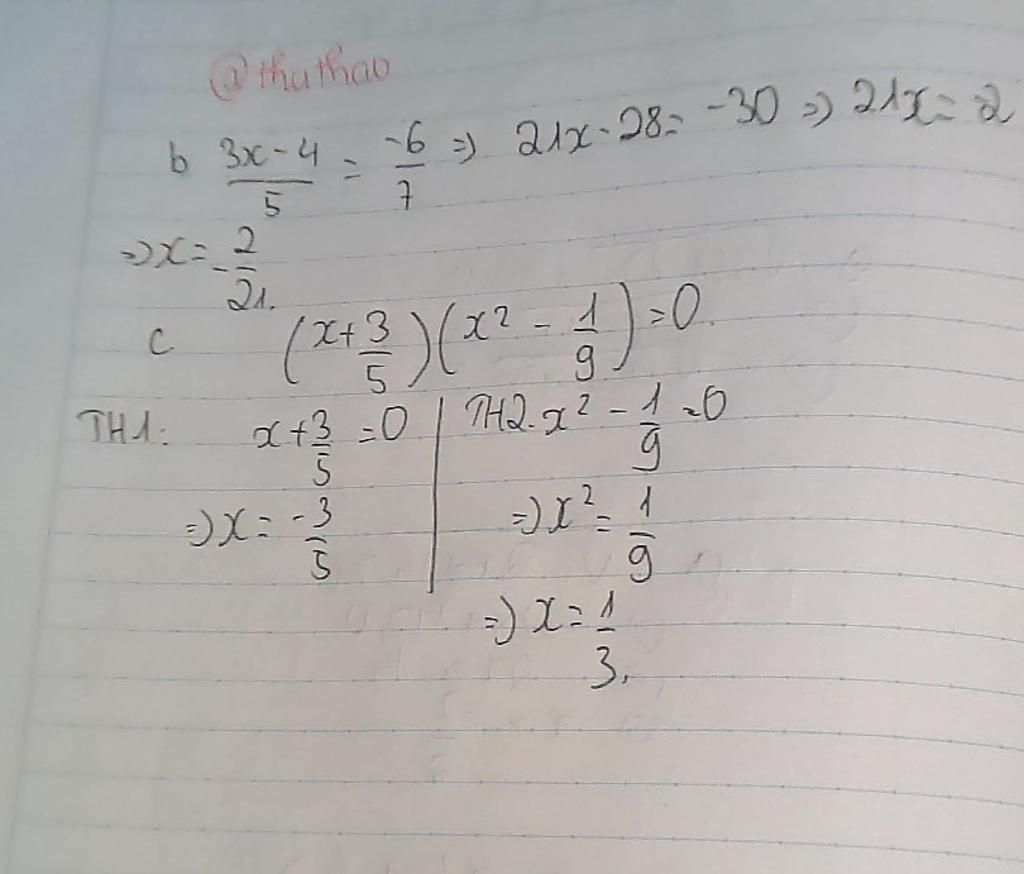 @thuthao
b (3x-4)/5 = -6/7 => 21x-28= -30 => 21x= -2
=> x= -2/21.
c (x+3/5)(x² - 1/9)=0.
TH1: x+3/5 =0 | TH2. x² - 1/9 =0
=> x= -3/5 | => x² = 1/9
=> x= 1/3.